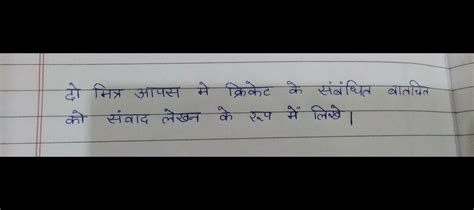 दो मित्र आपस मे क्रिकेट के संबंधित बातचित
को संवाद लेखन के रूप में लिखे।